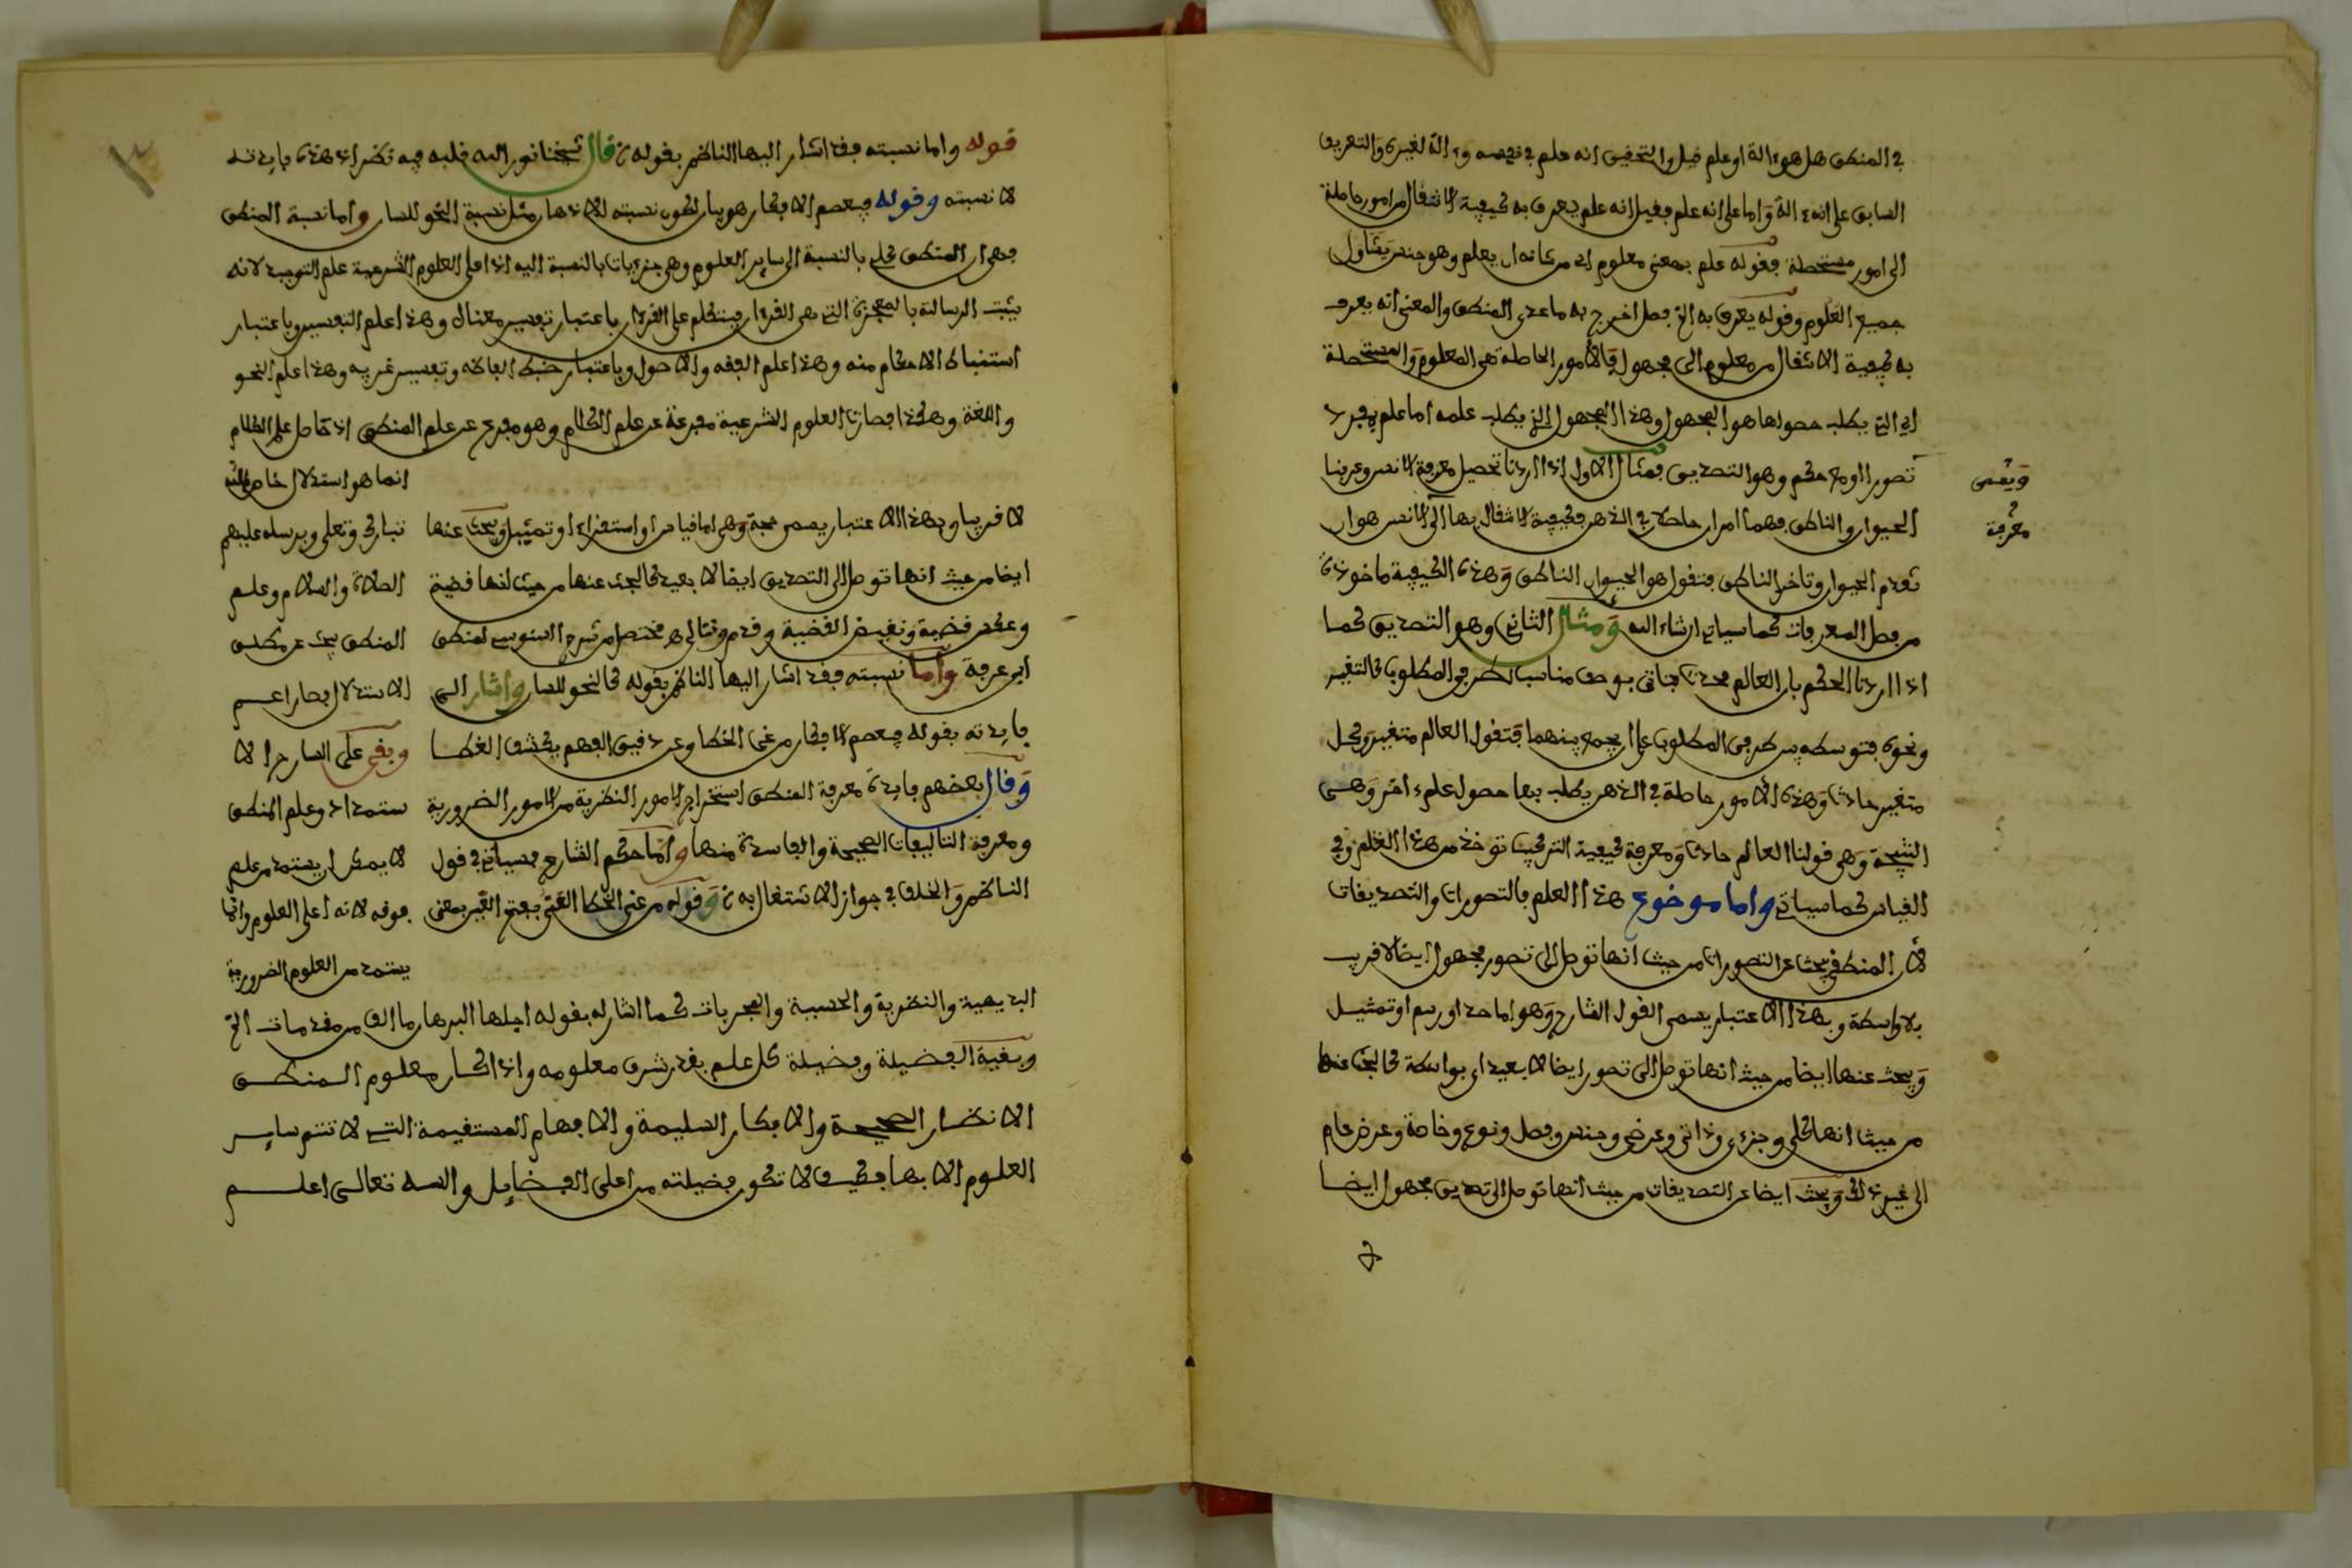 في المنطق هل هو ءالة او علم قيل والتحقيق انه علم في نفسه وءالة لغيره والتعريف
السابق على انه ءالة واما على انه علم فقيل انه علم يعرف به كيفية الانتقال من امور حاصلة
الى امور مستحصلة فقوله علم بمعنى معلوم اي من شانه ان يعلم وهو جنس يتناول
جميع العلوم وقوله يعرف به الخ فصل اخرج به ما عدى المنطق والمعنى انه يعرف
به كيفية الانتقال من معلوم الى مجهول فالامور الحاصلة هي المعلوم والمستحصلة
اي التي يطلب حصولها هو المجهول وهذا المجهول الذي يطلب علمه اما علم مفرد
ويسمى
تصورا او مع حكم وهو التصديق فمثال الاول اذا اردنا تحصيل معرفة الانسن وعرفنا
معرفة
الحيوان والناطق فهما امران حاصلان في الذهن وكيفية الانتقال بها الى الانسن هو ان
تقدم الحيوان وتاخر الناطق فتقول هو الحيوان الناطق وهذه الكيفية ماخوذة
من فصل المعرفات كما سياتي ان شاء الله ومثال الثاني وهو التصديق كما
اذا اردنا الحكم بان العالم محدث فناتي بوصف مناسب لطرفي المطلوب كالتغير
ونحوه فتوسطه بين طرفي المطلوب على ان يجمع بينهما فتقول العالم متغير وكل
متغير حادث وهذه الامور حاصلة في الذهن يطلب بها حصول علم ءاخر وهي
النتيجة وهي قولنا العالم حادث ومعرفة كيفية التركيب توخذ من هذا العلم وفي
القياس كما سياتي واما موضوع هذا العلم فالتصورات والتصديقات
لان المنطقي يبحث عن التصورات من حيث انها توصل الى تصور مجهول ايصالا قريب
بلا واسطة وبهذا الاعتبار يسمى القول الشارح وهو اما حد او رسم او تمثيل
ويبحث عنها ايضا من حيث انها توصل الى تصور ايصالا بعيدا اي بواسطة كالبحث عنها
من حيث انها كلي وجزءي وذاتي وعرضي وجنس وفصل ونوع وخاصة وعرض عام
الى غير ذلك ويبحث ايضا عن التصديقات من حيث انها توصل الى تصديق مجهول ايصا
قوله واما نسبته فقد اشار اليها الناظم بقوله قال شيخنا نور الله قلبه فيه نظر اذ هذه فايدته
لا نسبته وقوله فيعصم الافكار هو بيان لكون نسبته للاذهان مثل نسبة النحو للسان واما نسبة المنطق
فهي ان المنطق كلي بالنسبة الى ساير العلوم وهي جزءيات بالنسبة اليه اذ اعلى العلوم الشرعية علم التوحيد لانه
يثبت الرسالة بالمعجزة التي هي القرءان فيتكلم على القرءان باعتبار تفسير معناه وهذا علم التفسير وباعتبار
استنباط الاحكام منه وهذا علم الفقه والاصول وباعتبار ضبط الفاظه وتفسير غريبه وهذا علم النحو
واللغة وهكذا فصارت العلوم الشرعية مفرعة عن علم الكلام وهو مفرع عن علم المنطق اذ حاصل علم الكلام
انما هو استدلال خاص بالله
لا قريبا وبهذا الاعتبار يسمى حجة وهي اما قياس او استقراء او تمثيل ويبحث عنها
تبارك وتعلى وبرسله عليهم
ايضا من حيث انها توصل الى التصديق ايصالا بعيدا كالبحث عنها من حيث انها قضية
الصلاة والسلام وعلم
وعكس قضية ونقيض القضية مختصر من شرح السنوسي لمنطق
المنطق يبحث عن مطلق
ابن عرفة واما نسبته فقد اشار اليها الناظم بقوله كالنحو للسان واشار الى
الاستدلال فصار اعم
فايدته بقوله فيعصم الافكار من غي الخطا وعن دقيق الفهم يكشف الغطا
وبقي على الشارح الا
وقال بعضهم فايدة معرفة المنطق استخراج الامور النظرية من الامور الضرورية
ستمداد وعلم المنطق
ومعرفة التاليفات الصحيحة والفاسدة منها واما حكم الشارع فسياتي في قول
لا يمكن ان يستمد من علم
الناظم والخلف في جواز الاشتغال به وقوله من غي الخطا الغي بفتح الغين بمعنى
فوقه لانه اعلى العلوم وانما
يستمد من العلوم الضرورية
البديهية والنظرية والحسية والمجربات كما اشار له بقوله اجلها البرهان ما الف من مقدمات الخ
وبقية الفضيلة وفضيلة كل علم بقدر شرف معلومه واذا كان معلوم المنطق
الانظار الصحيحة والافكار السليمة والافهام المستقيمة التي لا تتم ساير
العلوم الا بها فكيف لا تكون فضيلته من اعلى الفضايل والله تعالى اعلم